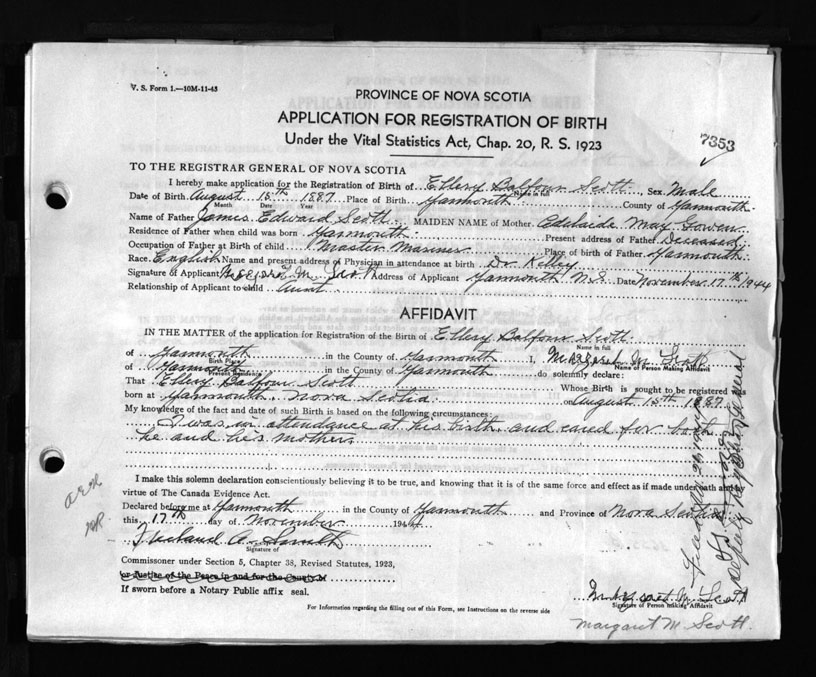 V. S. Form 1.—10M-11-43
PROVINCE OF NOVA SCOTIA
APPLICATION FOR REGISTRATION OF BIRTH
Under the Vital Statistics Act, Chap. 20, R. S. 1923
7353
TO THE REGISTRAR GENERAL OF NOVA SCOTIA
I hereby make application for the Registration of Birth of Ellery Balfour Scott Sex Male
Name in full
Date of Birth August 15th 1887 Place of Birth Yarmouth County of Yarmouth
Month Date Year
Name of Father James Edward Scott MAIDEN NAME of Mother Adelaide May Gowen
Residence of Father when child was born Yarmouth Present address of Father Deceased
Occupation of Father at Birth of child Master Mariner Place of birth of Father Yarmouth
Race English Name and present address of Physician in attendance at birth Dr Kelley
Signature of Applicant Margaret M. Scott Address of Applicant Yarmouth N.S. Date November 17th 1944
Relationship of Applicant to child Aunt
AFFIDAVIT
IN THE MATTER of the application for Registration of the Birth of Ellery Balfour Scott
Name in full
of Yarmouth in the County of Yarmouth I, Margaret M Scott
Birth Place Name of Person Making Affidavit
of Yarmouth in the County of Yarmouth do solemnly declare:
Present Residence
That Ellery Balfour Scott Whose Birth is sought to be registered was
born at Yarmouth Nova Scotia on August 15th 1887
My knowledge of the fact and date of such Birth is based on the following circumstances:
I was in attendance at his birth and cared for both
he and his mother
I make this solemn declaration conscientiously believing it to be true, and knowing that it is of the same force and effect as if made under oath and by
virtue of The Canada Evidence Act.
Declared before me at Yarmouth in the County of Yarmouth and Province of Nova Scotia
this 17th day of November 1944
Freeland A. Smith
Signature of
Commissioner under Section 5, Chapter 38, Revised Statutes, 1923,
or Justice of the Peace in and for the County of
If sworn before a Notary Public affix seal.
Margaret M. Scott
Signature of Person making Affidavit
For Information regarding the filling out of this Form, see Instructions on the reverse side
Margaret M. Scott
Deputy Registrar General